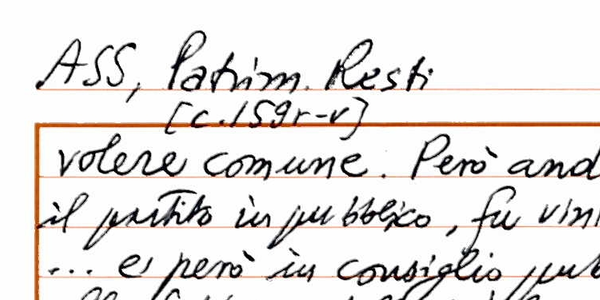 ASS, Patrim. Resti
[c.159r-v]
volere comune. Però and
il partito in pubblico, fu vin
... e però in consiglio pub